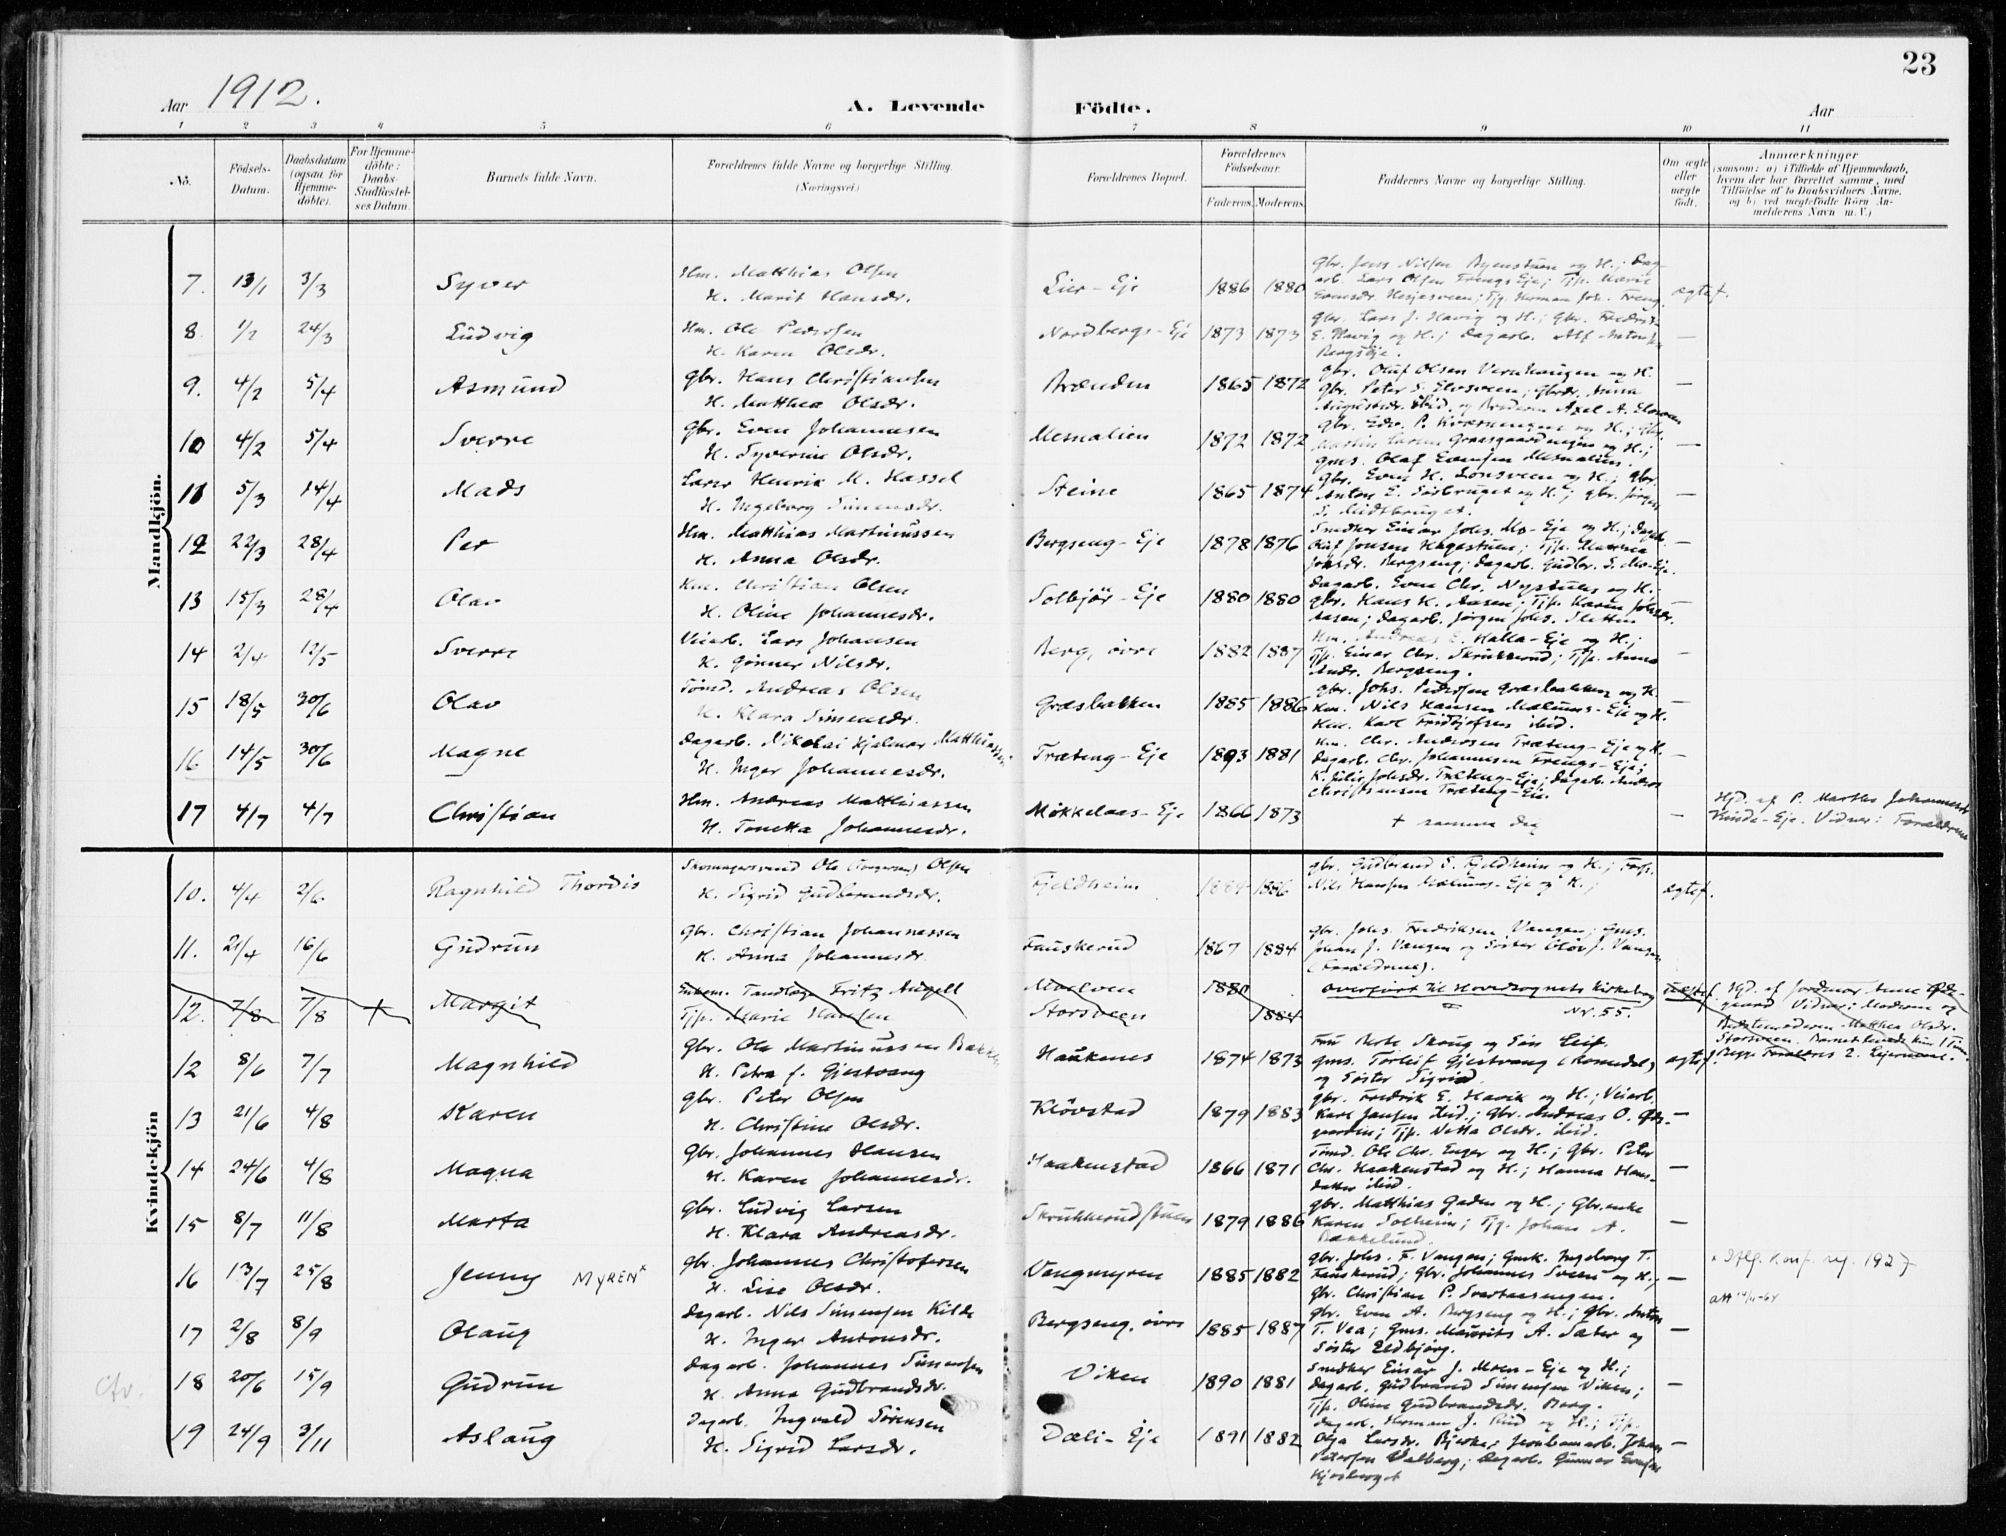 23
Aar 1912. A. Levende Födte. Aar
1 2 3 4 5 6 7 8 9 10 11
No.
Födsels-
Datum.
Daabsdatum
(ogsaa for
Hjemme-
döbte).
For Hjemme-
döbte:
Daabs-
Stadfæstel-
ses Datum.
Barnets fulde Navn.
Forældrenes fulde Navne og borgerlige Stilling.
(Næringsvei)
Forældrenes Bopæl.
Forældrenes
Födselsaar.
Faderens. Moderens.
Faddernes Navne og borgerlige Stilling.
Om ægte
eller
uægte
født.
Anmærkninger
(saasom: a) i Tilfælde af Hjemmedaab,
hvem der har forrettet samme, med
Tilföielse af to Daabsvidners Navne,
og b) ved uægtefödte Börn An-
melderens Navn m. V.)
Mandkjön.
7. 13/1 3/3 Syver
Hm. Matthias Olsen
H. Marit Hansdr.
Lier-Eje 1886 1880
Gbr. Jens Nilsen Byenstuen og H.; Dag-
arb. Lars Olsen Frengs Eje; Tjp. Marie
ægtef.
8. 1/2 24/3 Ludvig
Hm. Ole Pedersen
H. Karen Olsdr.
Nordbergs-Eje 1873 1873
Gbr. Lars J. Havig og H.; Gbr. Fredrik
E. Havig og H.; Dagarb. Alf Antons.
Bergseje. —
9. 4/2 5/4 Asmund
Gbr. Hans Christiansen
H. Matthea Olsdr.
Brænden 1865 1872
Gbr. Oluf Olsen Vernhaugen og H.
Gbr. Peter S. Elvsveen; Gbrdr. Anna
Augustadr. ibid. og Broderen Axel A. Elvsveen —
10 4/2 5/4 Sverre
Gbr. Even Johannesen
H. Syverine Olsdr.
Mesnalien 1872 1872
Gbr. Edv. P. Kværnengen og H.; Gbr.
Martin Larsen Graasgaardengen og H.;
Gms. Olaf Evensen Mesnalien. —
11 5/3 14/4 Mads
Lærer Henrik M. Hassel
H. Ingeborg Simensdr.
Steine 1865 1874
Gbr. Even H. Lonsveen og H.; Gbr.
Anton E. Søsbruget og H.; Gbr. Jørgen
S. Midtbruget. —
12 22/3 28/4 Per
Hm. Matthias Martinussen
H. Anna Olsdr.
Bergseng-Eje 1878 1876
Snedker Einar Johs. Mo-Eje og H.; Dagarb.
Oluf Jonsen Hagastuen; Tjp. Martha
Johsdr. Bergseng; Dagarb. Gudbr. S. Mo-Eje. —
13 15/3 28/4 Olav
Hm. Christian Olsen
H. Oline Johannesdr.
Solbjör-Eje 1880 1880
Dagarb. Even Chr. Nystuen og H.
Gbr. Hans H. Aasen; Tjp. Karen Johsdr.
Aasen; Dagarb. Jørgen Johs. Sletten —
14 2/4 12/5 Sverre
Veiarb. Lars Johansen
H. Gunner Nilsdr.
Berg, øvre 1882 1887
Hm. Andreas E. Halla-Eje og H.;
Tjp. Einar Chr. Skrukkerud; Tjp. Anna
Andr. Bergseng. —
15 18/5 30/6 Olav
Tømd. Andreas Olsen
H. Klara Simensdr.
Græsbakken 1885 1886
Gbr. Johs. Pedersen Græsbakken og H.
Hm. Nils Hansen Mælums-Eje og H.
Hm. Karl Fridtjofsen ibid. —
16 14/5 30/6 Magne
Dagarb. Nikolai Hjalmar Matthiassen
H. Inger Johannesdr.
Træteng-Eje 1893 1881
Hm. Chr. Andersen Træteng-Eje og H.
Dagarb. Chr. Johannesen Frengs-Eje;
K. Julie Johsdr. Træteng-Eje; Dagarb. Anders
Christiansen Træteng-Eje. —
17 4/7 4/7 Christian
Hm. Andreas Matthiassen
H. Tonetta Johannesdr.
Mikkelaas-Eje 1866 1873
+ samme dag —
Hjd. af P. Marthe Johannesdr
Rinde-Eje. Vidner: Forældrene
Kvindekjön
10. 4/4 2/6 Ragnhild Thordis
Skomagersvend Ole (Torgersen) Olsen
H. Sigrid Gudbrandsdr.
Fjeldheim 1884 1886
Gbr. Gudbrand S. Fjeldheim og H.; Forp.
Nils Hansen Mælums-Eje og H.; ægtef.
11. 21/4 16/6 Gudrun
Gbr. Christian Johannessen
H. Anna Johannesdr.
Fauskerud 1867 1884
Gbr. Johs. Fredriksen Vangen; Gms.
Johan J. Vangen og Søster Oløv J. Vangen
(Forældrene).
12. 7/8 7/8 + Margit
Enkem. Tandlæge Fritz Angell
Tjp. Marie Hansen
Moelven
Storsveen
1880 1884
Overført til Hovedsognets Kirkebog
Nr. 55.
Uægtef.
Hjd. af Jordmor Anne Øde-
gaard Vidner: Moderen og
Bedstemoderen Matthea Olsdr.
Storsveen. Barnet levede kun 1 Time.
Begge Forældres 2. Leiermaal.
12 8/6 7/7 Magnhild
Gbr. Ole Martinussen Bakken
H. Petra f. Gjestvang
Haukenes 1874 1873
Fru Berte Skoug og Søn Leif.
Gms. Torleif Gjestvang (Romedal)
og Søster Sigrid. ægtef.
13 21/6 4/8 Karen
Gbr. Peter Olsen
H. Christine Olsdr.
Klövstad 1879 1883
Gbr. Fredrik E. Havik og H.; Veiarb.
Karl Jansen ibid.; Gbr. Andreas O. Øde-
gaarden; Tjp. Netta Olsdr. ibid. —
14 24/6 4/8 Magna
Gbr. Johannes Hansen
H. Karen Johannesdr.
Haakenstad 1866 1871
Tømd. Ole Chr. Enger og H.; Gbr. Peter
Chr. Haakenstad og H.; Hanna Hans-
datter ibid. —
15 8/7 11/8 Marta
Gbr. Ludvig Larsen
H. Klara Andreasdr.
Skrukkerudstuen 1879 1886
Gbr. Matthias Gaden og H.; Gbr.enke
Karen Solheim; Tjg. Johan A.
Bakkelund. —
16 13/7 25/8 Jenny MYREN x
Gbr. Johannes Christofersen
H. Lise Olsdr.
Vangmyren 1885 1882
Gbr. Johs. F. Vangen; Gmk. Ingeborg T.
Fauskerud; Gbr. Johannes Sveen og H.;
Gbr. Christian P. Svartaasengen. —
x Iflg. konf. reg. 1927
17 2/8 8/9 Olaug
Dagarb. Nils Simensen Kilde
H. Inger Antonsdr.
Bergseng, øvre 1885 1887
Gbr. Even A. Bergseng og H.; Gbr. Anton
T. Vea; Gms. Mauritz A. Sæter og
Søster Eldbjørg. —
18 20/6 15/9 Gudrun
Dagarb. Johannes Simensen
H. Anna Gudbrandsdr.
Viken 1890 1881
Snedker Einar J. Moen-Eje og H.;
Dagarb. Gudbrand Simensen Viken;
Tjp. Oline Gudbrandsdr. Berg. —
19 24/9 3/11 Aslaug
Dagarb. Ingvald Sørensen
H. Sigrid Larsdr.
Dæli-Eje 1891 1882
Dagarb. Herman J. Rud og H.; Tjp.
Olga Larsdr. Bjerke; Jernbanearb. Johan
Petersen Dalberg; Dagarb. Gunnar Evensen
Kjosberget —